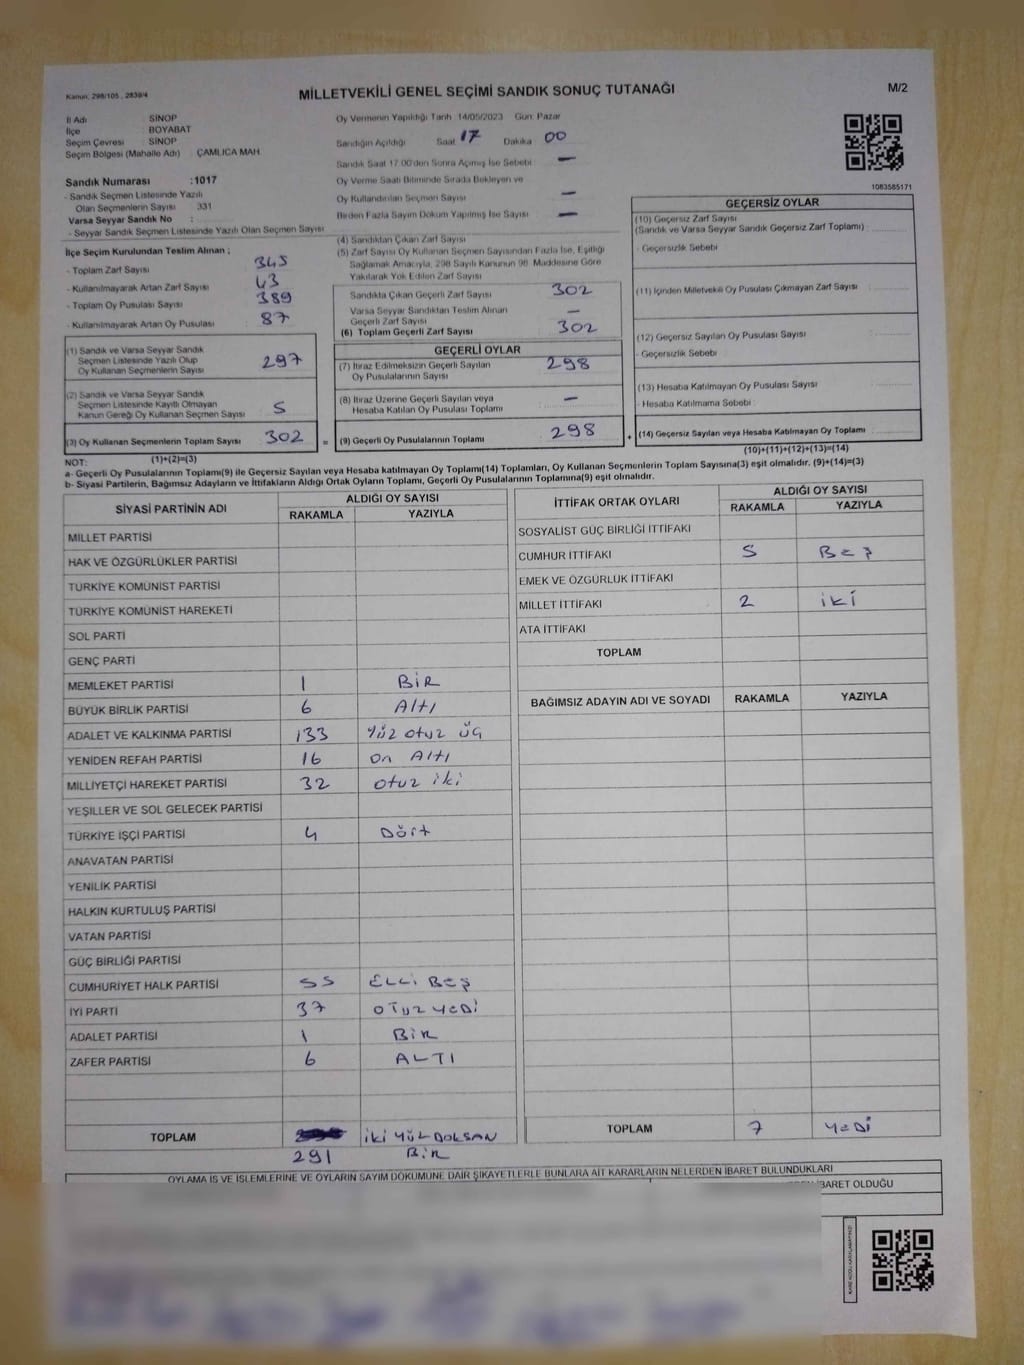 Kanun: 298/105 , 2839/4
MİLLETVEKİLİ GENEL SEÇİMİ SANDIK SONUÇ TUTANAĞI
M/2
İl Adı : SİNOP
İlçe : BOYABAT
Seçim Çevresi : SİNOP
Seçim Bölgesi (Mahalle Adı) : ÇAMLICA MAH.
Sandık Numarası :1017
- Sandık Seçmen Listesinde Yazılı
Olan Seçmenlerin Sayısı : 331
Varsa Seyyar Sandık No :
- Seyyar Sandık Seçmen Listesinde Yazılı Olan Seçmen Sayısı :
Oy Vermenin Yapıldığı Tarih 14/05/2023 Gün: Pazar
Sandığın Açıldığı Saat 17 Dakika 00
Sandık Saat 17.00'den Sonra Açılmış İse Sebebi —
Oy Verme Saati Bitiminde Sırada Bekleyen ve
Oy Kullandırılan Seçmen Sayısı —
Birden Fazla Sayım Döküm Yapılmış İse Sayısı —
1083585171
İlçe Seçim Kurulundan Teslim Alınan ;
- Toplam Zarf Sayısı 345
- Kullanılmayarak Artan Zarf Sayısı : 43
- Toplam Oy Pusulası Sayısı : 389
- Kullanılmayarak Artan Oy Pusulası : 87
(1) Sandık ve Varsa Seyyar Sandık
Seçmen Listesinde Yazılı Olup
Oy Kullanan Seçmenlerin Sayısı 297
(2) Sandık ve Varsa Seyyar Sandık
Seçmen Listesinde Kayıtlı Olmayan
Kanun Gereği Oy Kullanan Seçmen Sayısı 5
(3) Oy Kullanan Seçmenlerin Toplam Sayısı 302 =
(1)+(2)=(3)
(4) Sandıktan Çıkan Zarf Sayısı
(5) Zarf Sayısı Oy Kullanan Seçmen Sayısından Fazla İse, Eşitliği
Sağlamak Amacıyla, 298 Sayılı Kanunun 98. Maddesine Göre
Yakılarak Yok Edilen Zarf Sayısı
Sandıkta Çıkan Geçerli Zarf Sayısı 302
Varsa Seyyar Sandıktan Teslim Alınan
Geçerli Zarf Sayısı —
(6) Toplam Geçerli Zarf Sayısı 302
GEÇERLİ OYLAR
(7) İtiraz Edilmeksizin Geçerli Sayılan
Oy Pusulalarının Sayısı 298
(8) İtiraz Üzerine Geçerli Sayılan veya
Hesaba Katılan Oy Pusulası Toplamı —
(9) Geçerli Oy Pusulalarının Toplamı 298 +
GEÇERSİZ OYLAR
(10) Geçersiz Zarf Sayısı
(Sandık ve Varsa Seyyar Sandık Geçersiz Zarf Toplamı) :
- Geçersizlik Sebebi :
(11) İçinden Milletvekili Oy Pusulası Çıkmayan Zarf Sayısı :
(12) Geçersiz Sayılan Oy Pusulası Sayısı :
- Geçersizlik Sebebi :
(13) Hesaba Katılmayan Oy Pusulası Sayısı :
- Hesaba Katılmama Sebebi :
(14) Geçersiz Sayılan veya Hesaba Katılmayan Oy Toplamı :
(10)+(11)+(12)+(13)=(14)
NOT:
a- Geçerli Oy Pusulalarının Toplamı(9) ile Geçersiz Sayılan veya Hesaba katılmayan Oy Toplamı(14) Toplamları, Oy Kullanan Seçmenlerin Toplam Sayısına(3) eşit olmalıdır. (9)+(14)=(3)
b- Siyasi Partilerin, Bağımsız Adayların ve İttifakların Aldığı Ortak Oyların Toplamı, Geçerli Oy Pusulalarının Toplamına(9) eşit olmalıdır.
SİYASİ PARTİNİN ADI ALDIĞI OY SAYISI
RAKAMLA YAZIYLA
MİLLET PARTİSİ
HAK VE ÖZGÜRLÜKLER PARTİSİ
TÜRKİYE KOMÜNİST PARTİSİ
TÜRKİYE KOMÜNİST HAREKETİ
SOL PARTİ
GENÇ PARTİ
MEMLEKET PARTİSİ 1 BİR
BÜYÜK BİRLİK PARTİSİ 6 Altı
ADALET VE KALKINMA PARTİSİ 133 Yüz otuz üç
YENİDEN REFAH PARTİSİ 16 on Altı
MİLLİYETÇİ HAREKET PARTİSİ 32 otuz iki
YEŞİLLER VE SOL GELECEK PARTİSİ
TÜRKİYE İŞÇİ PARTİSİ 4 Dört
ANAVATAN PARTİSİ
YENİLİK PARTİSİ
HALKIN KURTULUŞ PARTİSİ
VATAN PARTİSİ
GÜÇ BİRLİĞİ PARTİSİ
CUMHURİYET HALK PARTİSİ 55 ELLİ BEŞ
İYİ PARTİ 37 OTUZ YEDİ
ADALET PARTİSİ 1 BİR
ZAFER PARTİSİ 6 ALTI
TOPLAM İKİ YÜZ DOKSAN
291 BİR
İTTİFAK ORTAK OYLARI ALDIĞI OY SAYISI
RAKAMLA YAZIYLA
SOSYALİST GÜÇ BİRLİĞİ İTTİFAKI
CUMHUR İTTİFAKI 5 BEŞ
EMEK VE ÖZGÜRLÜK İTTİFAKI
MİLLET İTTİFAKI 2 İKİ
ATA İTTİFAKI
TOPLAM
BAĞIMSIZ ADAYIN ADI VE SOYADI RAKAMLA YAZIYLA
TOPLAM 7 YEDİ
OYLAMA İŞ VE İŞLEMLERİNE VE OYLARIN SAYIM DÖKÜMÜNE DAİR ŞİKAYETLERLE BUNLARA AİT KARARLARIN NELERDEN İBARET BULUNDUKLARI
İBARET OLDUĞU